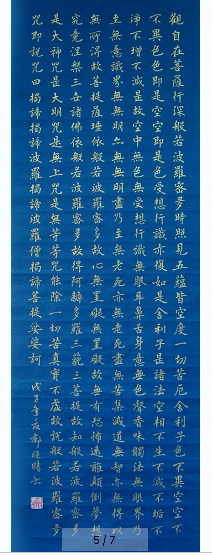 觀自在菩薩行深般若波羅蜜多時照見五蘊皆空度一切苦厄舍利子色不異空空
不異色色即是空空即是色受想行識亦復如是舍利子是諸法空相不生不滅不垢不
淨不增不減是故空中無色無受想行識無眼耳鼻舌身意無色聲香味觸法無眼界乃
至無意識界無無明亦無無明盡乃至無老死亦無老死盡無苦集滅道無智亦無得以
無所得故菩提薩埵依般若波羅蜜多故心無罣礙無罣礙故無有恐怖遠離顛倒夢想
究竟涅槃三世諸佛依般若波羅蜜多故得阿耨多羅三藐三菩提故知般若波羅蜜多
是大神咒是大明咒是無上咒是無等等咒能除一切苦真實不虛故說般若波羅蜜多
咒即說咒曰揭諦揭諦波羅揭諦波羅僧揭諦菩提娑婆訶 戊子年
5/7